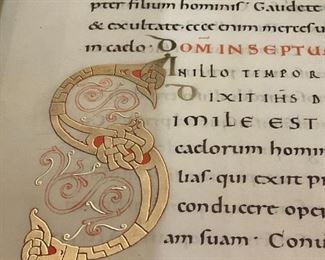 pter filium hominis. Gaudete
& exultate ecce enim merces u
in caelo. DOM IN SEPTUA
IN ILLO TEMPOR
DIXIT IHS D
IMILE EST
caelorum homin
lias. qui exiit pr
conducere oper
am suam. Conu